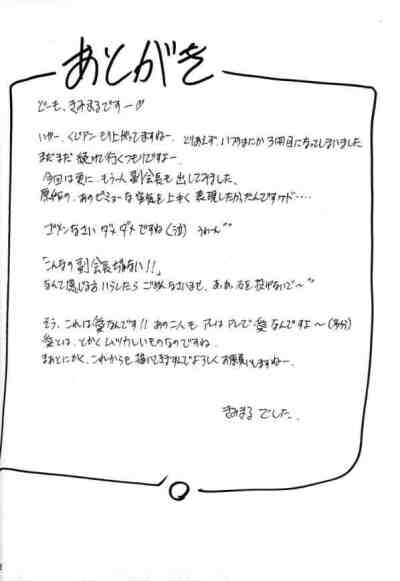 あとがき
どーも、きみまるですー♡
いやー、くじアン もり上がってますねー。とりあえず、いつのまにか3冊目になってしまいました
まだまだ続けて行くつもりですよー。
今回は更に、もう一人副会長も出してみました。
原作の、あのビミョーな空気を上手く表現したかったんですケド‥‥
ゴメンなさい ダメダメですね(泣) うわーん
「こんなの副会長じゃない!!」
なんて感じる方いらしたら ごめんなさいませ、あぁ、石を投げないで〜
そう、これは愛なんです!! あの二人も アレはアレで愛なんですよ〜(多分)
愛とは、とかくムツカしいものなのですね。
まぁとにかく、これからも描いてきますんでよろしくお願いしますねー。
きみまる でした.